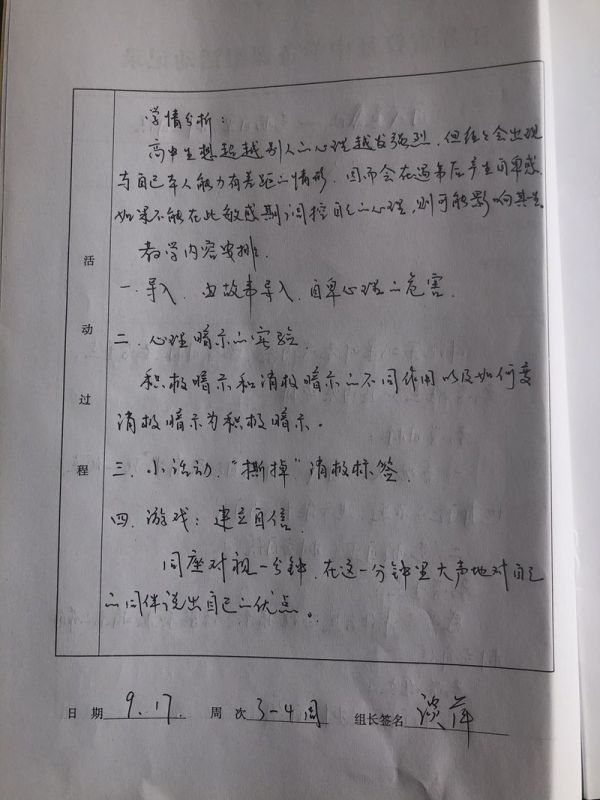 学情分析：
高中生想超越别人的心理越发强烈，但往往会出现
与自己本人能力有差距的情形，因而会在遇事后产生自卑感，
如果不能在此敏感期调控自己的心理，则可能影响其一生
教学内容安排．
一．导入．由故事导入．自卑心理的危害．
二．心理暗示的实验．
积极暗示和消极暗示的不同作用以及如何变
消极暗示为积极暗示。
三．小活动．“撕掉”消极标签．
四．游戏：建立自信．
同座对视一分钟．在这一分钟里大声地对自己
的同伴说出自己的优点。
活动过程
日期 9.17. 周次 3-4周 组长签名 谈萍